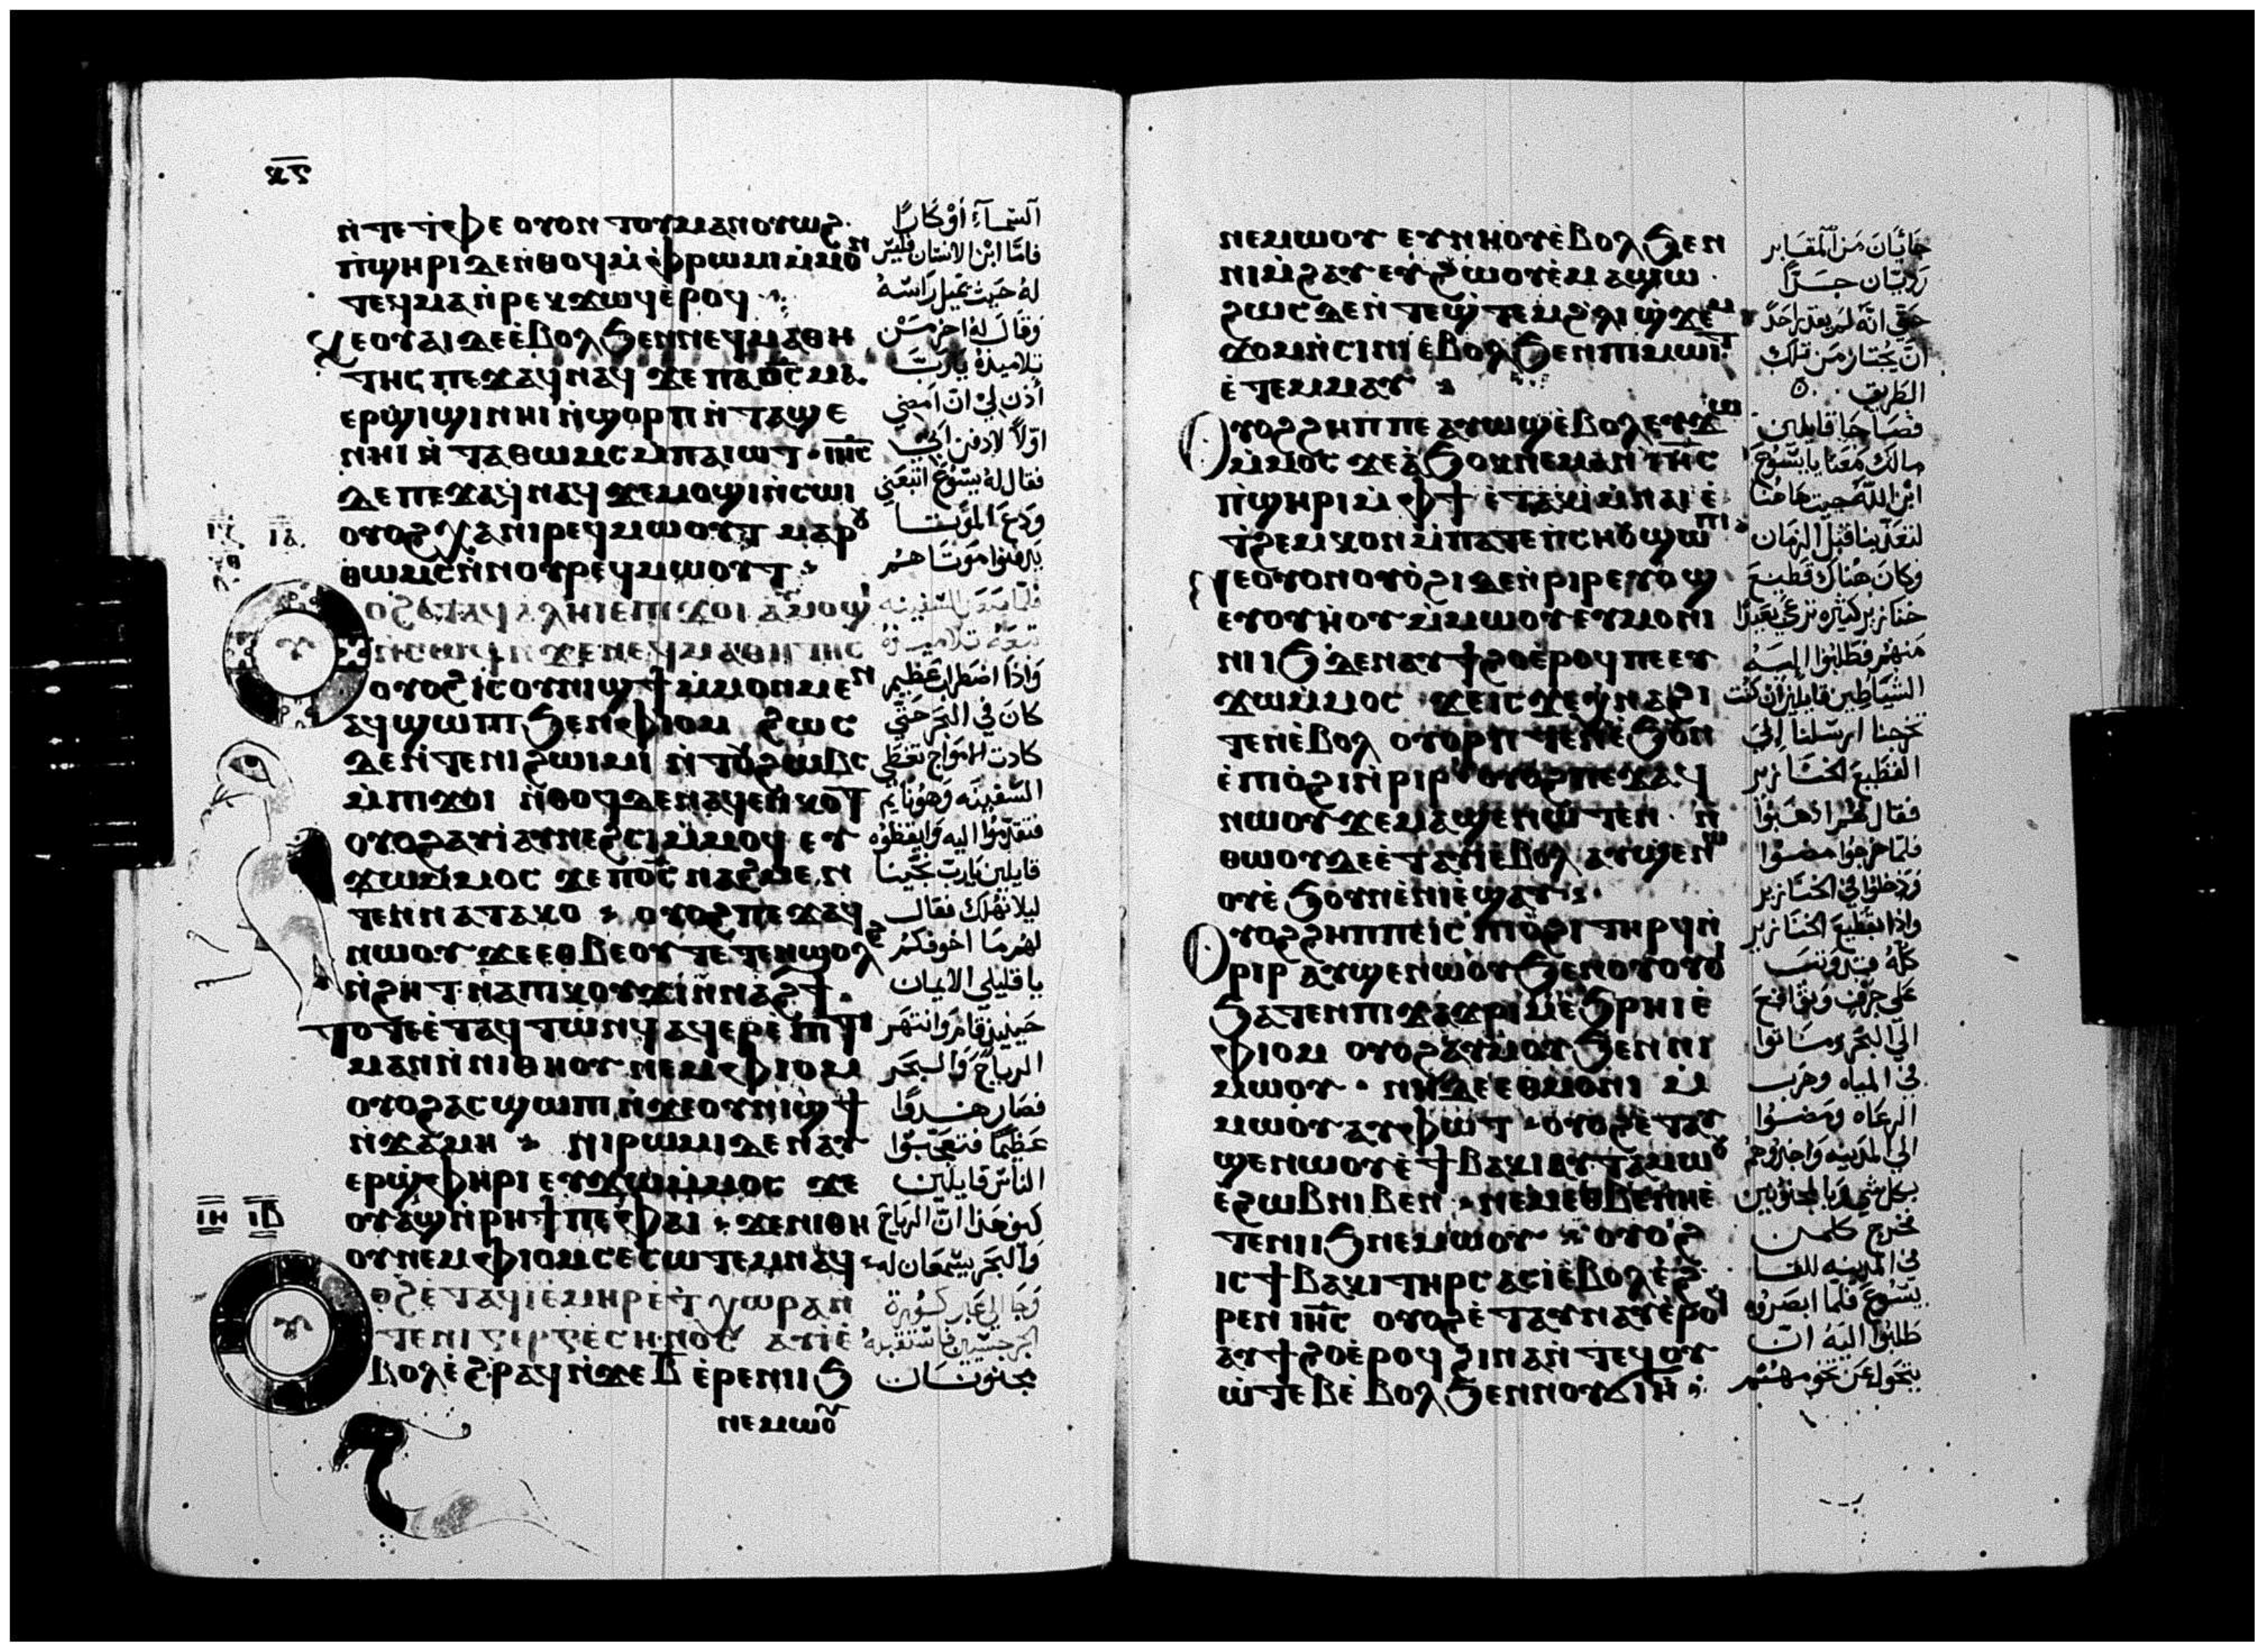 ⲛ̀ⲧⲉⲧ̀ⲫⲉ ⲟⲩⲟⲛ ⲧⲟⲩⲙⲁⲛⲟⲩⲱϩ
ⲡ̀ϣⲏⲣⲓ ⲇⲉⲛ̀ⲑⲟϥ ⲙ̀ⲫⲣⲱⲙⲓ ⲙ̀ⲙⲟⲛ
ⲧⲉϥⲙⲁ ⲛ̀ⲣⲉⲕ ϫⲱϥ ⲉ̀ⲣⲟϥ
ⲕⲉⲟⲩⲁⲓ ⲇⲉ ⲉ̀ⲃⲟⲗ ϧⲉⲛⲛⲉϥⲙⲁⲑⲏ
ⲧⲏⲥ ⲡⲉϫⲁϥ ⲛⲁϥ ϫⲉ ⲡⲁⲟ̅ⲥ̅ ⲙⲁ
ⲉⲣϣⲓϣⲓ ⲛⲏⲓ ⲛ̀ϣⲟⲣⲡ ⲛ̀ⲧⲁϣⲉ
ⲛⲏⲓ ⲛ̀ⲧⲁⲑⲱⲙⲥ ⲙ̀ⲡⲁⲓⲱⲧ ⲓⲏ̅ⲥ̅
ⲇⲉ ⲡⲉϫⲁϥ ⲛⲁϥ ϫⲉ ⲙⲟϣⲓ ⲛ̀ⲥⲱⲓ
ⲟⲩⲟϩ ⲭⲁ ⲛⲓⲣⲉϥⲙⲱⲟⲩⲧ ⲙⲁⲣⲟⲩ
ⲑⲱⲙⲥ ⲛ̀ⲛⲟⲩⲣⲉϥⲙⲱⲟⲩⲧ
ⲟϩ ⲉ̀ⲧⲁϥⲁⲗⲏⲓ ⲉ̀ⲡⲓϫⲟⲓ ⲁⲩⲙⲟϣⲓ
ⲛ̀ⲥⲱϥ ⲛ̀ϫⲉ ⲛⲉϥⲙⲁⲑⲏⲧⲏⲥ
ⲟⲩⲟϩ ⲓⲥ ⲟⲩⲛⲓϣϯ ⲙ̀ⲙⲟⲛⲙⲉⲛ
ⲁϥϣⲱⲡⲓ ϧⲉⲛ ⲫⲓⲟⲙ ϩⲱⲥ
ⲇⲉ ⲛ̀ⲧⲉ ⲛⲓϩⲱⲓⲙⲓ ⲛ̀ⲧⲟⲩϩⲱⲃⲥ
ⲙ̀ⲡⲓϫⲟⲓ ⲛ̀ⲑⲟϥ ⲇⲉ ⲛⲁϥⲉⲛⲕⲟⲧ
ⲟⲩⲟϩ ⲁⲩⲓ̀ ⲁⲩⲛⲉϩⲥⲓ ⲙ̀ⲙⲟϥ ⲉⲩ
ϫⲱ ⲙ̀ⲙⲟⲥ ϫⲉ ⲡⲟ̅ⲥ̅ ⲛⲁϩⲙⲉⲛ
ⲧⲉⲛⲛⲁⲧⲁⲕⲟ ⲟⲩⲟϩ ⲡⲉϫⲁϥ
ⲛⲱⲟⲩ ϫⲉ ⲉⲑⲃⲉⲟⲩ ⲧⲉⲧⲉⲛϣⲟⲗϩ
ⲛ̀ϩⲏⲧ ⲛⲁ ⲡⲓⲕⲟⲩϫⲓ ⲛ̀ⲛⲁϩϯ
ⲧⲟⲧⲉ ⲉ̀ⲧⲁϥⲧⲱⲛϥ ⲁϥⲉⲣⲉ̀ⲡⲓⲧⲓ
ⲙⲁⲛ ⲛ̀ⲛⲓⲑⲏⲟⲩ ⲛⲉⲙ ⲫⲓⲟⲙ
ⲟⲩⲟϩ ⲁⲥϣⲱⲡⲓ ⲛ̀ϫⲉ ⲟⲩⲛⲓϣϯ
ⲛ̀ϫⲁⲙⲏ ⲛⲓⲣⲱⲙⲓ ⲇⲉ ⲛⲁⲩ
ⲉⲣϣⲫⲏⲣⲓ ⲉⲩϫⲱ ⲙ̀ⲙⲟⲥ ϫⲉ
ⲟⲩⲁϣ ⲛ̀ⲣⲏϯ ⲡⲉ ⲫⲁⲓ ϫⲉ ⲛⲓⲑⲏ
ⲟⲩ ⲛⲉⲙ ⲫⲓⲟⲙ ⲥⲉⲥⲱⲧⲉⲙ ⲛⲁϥ
ⲟϩ ⲉ̀ⲧⲁϥⲓ̀ ⲉ̀ⲙⲏⲣ ⲉ̀ϯⲭⲱⲣⲁ ⲛ̀
ⲧⲉ ⲛⲓⲅⲉⲣⲅⲉⲥⲏⲛⲟⲥ ⲁⲩⲓ̀ ⲉ̀
ⲃⲟⲗ ⲉ̀ϩⲣⲁϥ ⲛ̀ϫⲉ ⲃ̅ ⲉ̀ⲣⲉ ⲛⲓⲓϧ
ⲛⲉⲙⲱⲟⲩ
السماء اوكارًا
فاما ابن الانسان فليس
له حيث يميل راسه
وقال له اخر من
تلاميذه يارب
أذن لي ان امضي
اولاً لادفن ابي
فقال له يسوع اتبعني
ودع الموتا
يدفنوا موتاهم
فلما صعد السفينه
تبعه تلاميذه
واذا اضطراب عظيم
كان في البحر حتي
كادت الامواج تغطي
السفينه وهو نايم
فتقدموا اليه وايقظوه
قايلين يارب نجينا
ليلا نهلك فقال
لهم ما اخوفكم
يا قليلي الايمان
حينيذ قام وانتهر
الرياح والبحر
فصار هدوًا
عظيمًا فتعجبوا
الناس قايلين
كيف هذا ان الرياح
والبحر يسمعان له
وجا الي عبر كورة
الجرجسيين فاستقبله
مجنونان
ⲛⲉⲙⲱⲟⲩ ⲉⲩⲛⲏⲟⲩ ⲉ̀ⲃⲟⲗ ϧⲉⲛ
ⲛⲓⲙ̀ϩⲁⲩ ⲉⲩϩⲱⲟⲩ ⲉ̀ⲙⲁϣⲱ
ϩⲱⲥ ⲇⲉ ⲛ̀ⲧⲉϣⲧⲉⲙ ϩⲗⲓ ϣϫⲉⲙ
ϫⲟⲙ ⲛ̀ⲥⲓⲛⲓ ⲉ̀ⲃⲟⲗ ϧⲉⲛ ⲡⲓⲙⲱⲓⲧ
ⲉ̀ⲧⲉⲙⲙⲁⲩ
ⲟⲩⲟϩ ϩⲏⲡⲡⲉ ⲁⲩⲱϣ ⲉ̀ⲃⲟⲗ ⲉⲩϫⲱ
ⲙ̀ⲙⲟⲥ ϫⲉ ⲁ̀ϧⲟⲕ ⲛⲉⲙⲁⲛ ⲓⲏ̅ⲥ̅
ⲡ̀ϣⲏⲣⲓ ⲙ̀ⲫϯ ⲉ̀ⲧⲁⲕⲓ̀ ⲙ̀ⲛⲁⲓ ⲉ̀
ⲧ̀ϩⲉⲙⲕⲟⲛ ⲙ̀ⲡⲁⲧⲉ ⲡⲥⲏⲟⲩ ϣⲱⲡⲓ
ⲛⲉ ⲟⲩⲟⲛ ⲟⲩⲟ̀ϩⲓ ⲇⲉ ⲛ̀ⲣⲓⲣ ⲉⲩⲟϣ
ⲉⲩⲟⲩⲏⲟⲩ ⲙ̀ⲙⲱⲟⲩ ⲉⲩⲙⲟⲛⲓ
ⲛⲓⲓϧ ⲇⲉ ⲛⲁⲩϯϩⲟ ⲉ̀ⲣⲟϥ ⲡⲉ ⲉⲩ
ϫⲱ ⲙ̀ⲙⲟⲥ ϫⲉ ⲓⲥϫⲉ ⲭⲛⲁϩⲓ
ⲧⲉⲛ ⲉ̀ⲃⲟⲗ ⲟⲩⲟⲣⲡⲧⲉⲛ ⲉ̀ϧⲟⲩⲛ
ⲉ̀ⲡⲓⲟ̀ϩⲓ ⲛ̀ⲣⲓⲣ ⲟⲩⲟϩ ⲡⲉϫⲁϥ
ⲛⲱⲟⲩ ϫⲉ ⲙⲁϣⲉⲛⲱⲧⲉⲛ ⲛ̀
ⲑⲱⲟⲩ ⲇⲉ ⲉ̀ⲧⲁⲩⲓ̀ ⲉ̀ⲃⲟⲗ ⲁⲩϣⲉⲛⲱ
ⲟⲩ ⲉ̀ϧⲟⲩⲛ ⲉ̀ⲛⲓⲉ̀ϣⲁⲩ
ⲟⲩⲟϩ ϩⲏⲡⲡⲉ ⲓⲥ ⲡⲓⲟ̀ϩⲓ ⲧⲏⲣϥ ⲛ̀
ⲣⲓⲣ ⲁⲩϣⲉⲛⲱⲟⲩ ϧⲉⲛ ⲟⲩⲟⲩⲟⲓ
ϧⲁⲧⲉⲛ ⲡⲓϫⲁϫⲣⲓⲙ ⲉ̀ϧⲣⲏⲓ ⲉ̀
ⲫⲓⲟⲙ ⲟⲩⲟϩ ⲁⲩⲙⲟⲩ ϧⲉⲛ ⲛⲓ
ⲙⲱⲟⲩ ⲛⲏ ⲇⲉ ⲉⲑⲙⲟⲛⲓ ⲙ̀
ⲙⲱⲟⲩ ⲁⲩⲫⲱⲧ ⲟⲩⲟϩ ⲉ̀ⲧⲁⲩ
ϣⲉⲛⲱⲟⲩ ⲉ̀ϯⲃⲁⲕⲓ ⲁⲩⲧⲁⲙⲱⲟⲩ
ⲉ̀ϩⲱⲃ ⲛⲓⲃⲉⲛ ⲛⲉⲙ ⲉⲑⲃⲉ ⲛⲏ ⲉ̀
ⲧⲉ ⲛⲓⲓϧ ⲛⲉⲙⲱⲟⲩ ⲟⲩⲟϩ
ⲓⲥ ϯⲃⲁⲕⲓ ⲧⲏⲣⲥ ⲁⲥⲓ̀ ⲉ̀ⲃⲟⲗ ⲉ̀ϩ
ⲣⲉⲛ ⲓⲏ̅ⲥ̅ ⲟⲩⲟϩ ⲉ̀ⲧⲁⲩⲛⲁⲩ ⲉ̀ⲣⲟϥ
ⲁⲩϯϩⲟ ⲉ̀ⲣⲟϥ ϩⲓⲛⲁ ⲛ̀ⲧⲉϥⲟⲩ
ⲱ̀ⲧⲉⲃ ⲉ̀ⲃⲟⲗ ϧⲉⲛ ⲛⲟⲩϭⲓⲏ
جائيان من المقابر
رديان جدًا
حتي انه لم يقدر احدً
ان يجتاز من تلك
الطريق
فصاحا قايلين
مالك معنا يا يسوع
ابن الله جيت هاهنا
لتعذبنا قبل الزمان
وكان هناك قطيع
خنازير كثيره ترعي بعيدًا
منهم فطلبوا اليه
الشياطين قايلين ان كنت
تخرجنا ارسلنا الي
القطيع الخنازير
فقال لهم اذهبوا
فلما خرجوا مضوا
ودخلوا في الخنازير
واذا بقطيع الخنازير
علي جرف وتواقع
الي البحر وماتوا
في المياه وهرب
الرعاه ومضوا
الي المدينه واخبروهم
بكل شي وبالمجنونين
فخرج كلمن
في المدينه للقا
يسوع فلما ابصروه
طلبوا اليه ان
يتحول عن تخومهم